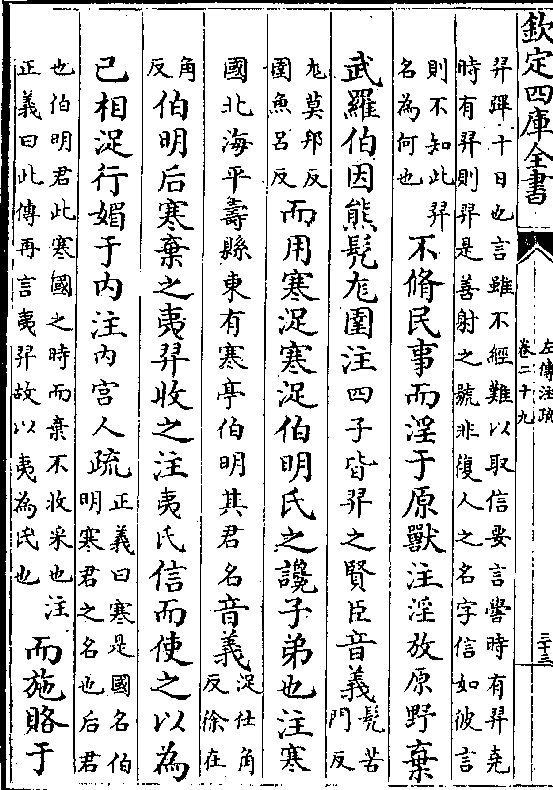 欽定四庫全書
左傳注疏
卷二十九
三十三
羿彈十日也言雖不經難以取信要言嚳時有羿堯
時有羿則羿是善射之號非復人之名字信如彼言
則不知此羿
名為何也
不脩民事而淫于原獸注淫放原野棄
武羅伯因熊髠尨圉注四子皆羿之賢臣音義
髠苦
門反
尨莫邦反
圉魚呂反
而用寒浞寒浞伯明氏之讒子弟也注寒
國北海平壽縣東有寒亭伯明其君名音義
浞仕角
反徐在
角
反
伯明后寒棄之夷羿收之注夷氏信而使之以為
己相浞行媚于内注内宫人疏
正義曰寒是國名伯
明寒君之名也后君
也伯明君此寒國之時而棄不收采也注
正義曰此傳再言夷羿故以夷為氏也
而施賂于